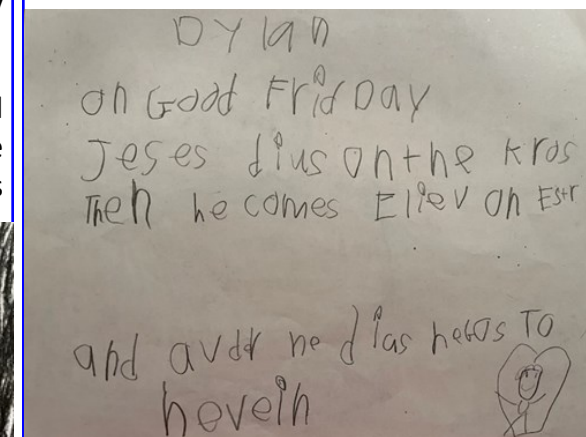 DYlan
on Good FridDay
Jeses dius on the kros
Then he comes Eliev on Estr
and avdr he dias hegos To
hevein